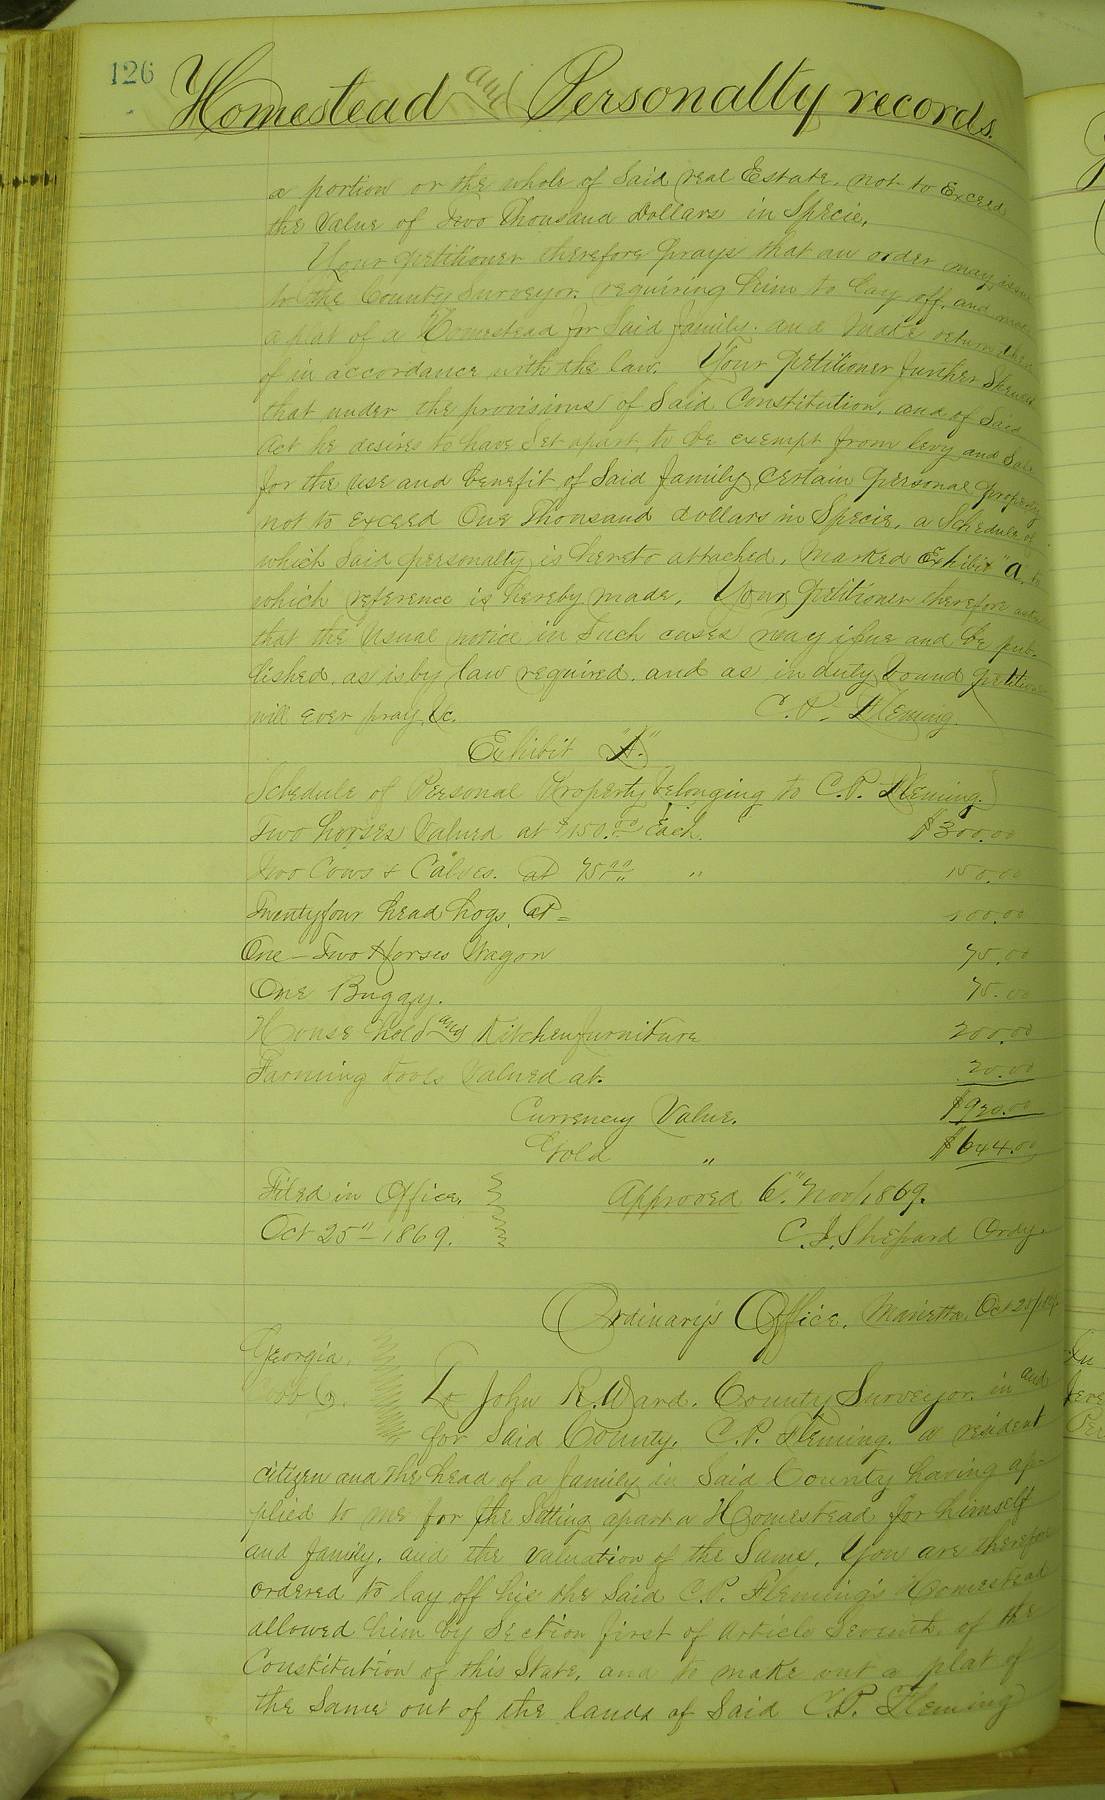 126
Homestead and Personalty records.
a portion or the whole of Said real Estate, not to Exceed
the Value of Two Thousand Dollars in Specie.
Your petitioner therefore prays that an order may issue
to the County Surveyor, requiring him to lay off, and make
a plat of a Homestead for Said family, and make return there
of in accordance with the law. Your petitioner further Shews
that under the provisions of Said Constitution, and of Said
Act he desires to have Set apart, to be exempt from levy and Sale
for the use and benefit of Said family, certain personal property
not to exceed One Thousand dollars in Specie, a Schedule of
which Said personalty is hereto attached, Marked Exhibit "A, to
which reference is hereby made. Your petitioner therefore asks
that the Usual notice in Such cases may issue and be pub-
lished, as is by law required, and as in duty bound petitioner
will ever pray, &c. C. P. Fleming.
Exhibit "A."
Schedule of Personal Property belonging to C. P. Fleming.
Two horses Valued at $150.00 Each. $300.00
Two Cows & Calves. at 75.00 " 150.00
Twentyfour head hogs, at = 100.00
One - Two Horses Wagon 75.00
One Buggy. 75.00
House hold and Kitchen furniture 200.00
Farming tools Valued at. 20.00
Currency Value. $920.00
Gold " $644.00
Filed in Office. Approved 6" Nov/1869.
Oct 25" 1869. C. J. Shepard Ordy.
Ordinary's Office, Marietta, Oct 25/
Georgia,
Cobb Co. To John R. Ward. County Surveyor, in and
for Said County. C. P. Fleming. a resident
citizen and the head of a family in Said County having ap-
plied to me for the Setting apart a Homestead for himself
and family, and the valuation of the Same. You are therefore
ordered to lay off his the Said C. P. Fleming's Homestead
allowed him by Section first of Article Seventh, of the
Constitution of this State, and to make out a plat of
the Same out of the lands of Said C. P. Fleming